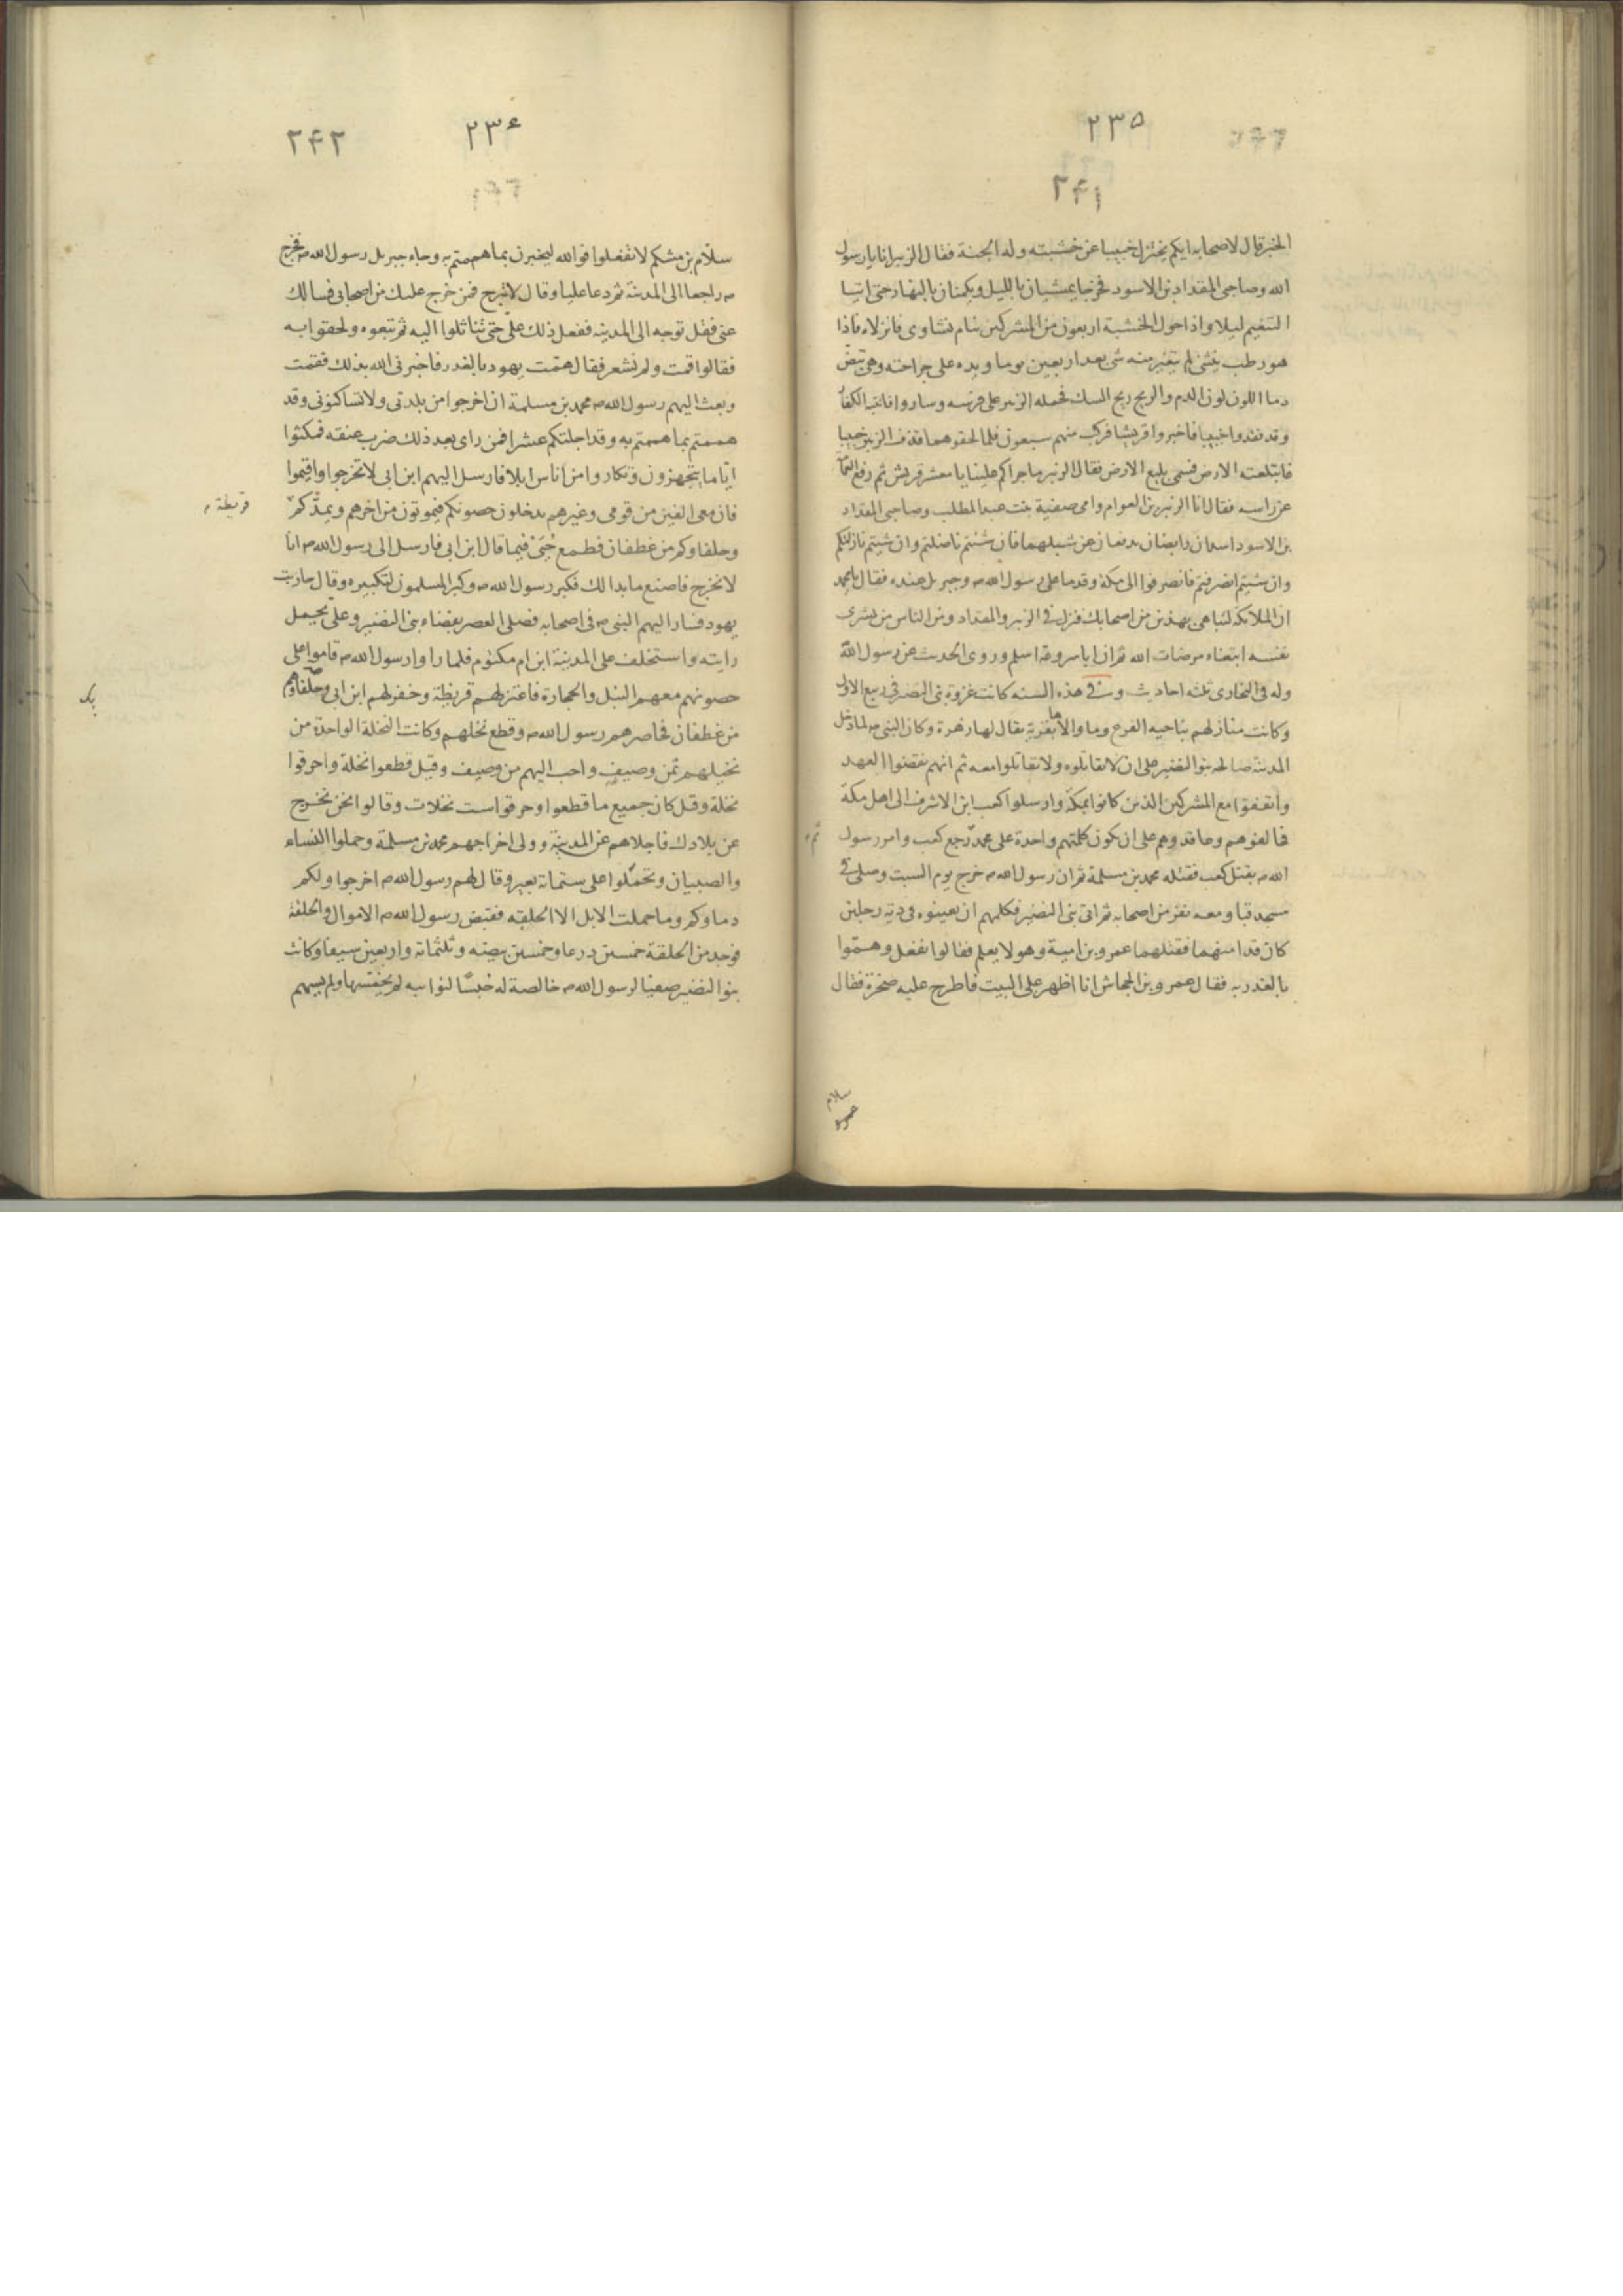 ٢٣٥
٢۴١
الخبر قال لاصحابه ايكم يختزل خبيبا عن خشبته وله الجنة فقال الزبير انا يا رسول
الله وصاحبى المقداد بن الاسود فخرجا يمشيان بالليل ويكمنان بالنهار حتى اتيا
التنعيم ليلا واذا حول الخشبة اربعون من المشركين نيام نشاوى فانزلاه فاذا
هو رطب يتثنى لم يتغير منه شئ بعد اربعين يوما ويده على جراحته وهى تبض
دما اللون لون الدم والريح ريح المسك فحمله الزبير على فرسه وسارا وانتبه الكفار
وقد فقدوا خبيبا فاخبروا قريشا فركب منهم سبعون فلما لحقوهما قذف الزبير خبيبا
فابتلعته الارض فسمى بليع الارض فقال الزبير ما جراكم علينا يا معشر قريش ثم رفع العمامة
عن راسه فقال انا الزبير بن العوام وامى صفية بنت عبد المطلب وصاحبى المقداد
بن الاسود اسدان رابضان يدفعان عن شبلهما فان شئتم ناضلتم وان شيتم نازلتكم
وان شيتم انصرفتم فانصرفوا الى مكة وقدما على رسول الله ص وجبريل عنده فقال يا محمد
ان الملائكة لتباهى بهذين من اصحابك فنزل فى الزبير والمقداد ومن الناس من يشرى
نفسه ابتغاء مرضات الله ثم ان ابا سروعة اسلم وروى الحديث عن رسول الله
وله فى البخارى ثلثه احاديث وفى هذه السنه كانت غزوة بنى النضير فى ربيع الاول
وكانت منازلهم بناحيه الفرع وما والاها بقرية يقال لها زهرة وكان النبى ص لما دخل
المدينة صالحه بنو النضير على ان لا يقاتلوه ولا يقاتلوا معه ثم انهم نقضوا العهد
واتفقوا مع المشركين الذين كانوا بمكة وارسلوا كعب ابن الاشرف الى اهل مكة
فحالفوهم وعاقدوهم على ان يكون كلمتهم واحدة على محمد رجع كعب وامر رسول
ثم
الله ص بقتل كعب فقتله محمد بن مسلمة ثم ان رسول الله ص خرج يوم السبت وصلى فى
مسجد قبا ومعه نفر من اصحابه ثم اتى بنى النضير فكلمهم ان يعينوه فى دية رجلين
كان قد امنهما فقتلهما عمرو بن امية وهو لا يعلم فقالوا نفعل وهموا
بالغدر به فقال عمرو بن الجحاش انا اظهر على البيت فاطرح عليه صخرة فقال
سلام
٢٣۶
٢۴٢
سلام بن مشكم لا تفعلوا فوالله ليخبرن بما هممتم به وجاء جبريل رسول الله ص فخرج
ص راجعا الى المدينة ثم دعا عليا وقال لا تبرح فمن خرج عليك من اصحابى فسالك
عنى فقل توجه الى المدينه ففعل ذلك على حتى تناثلوا اليه ثم تبعوه ولحقوا به
فقالوا قمت ولم نشعر فقال همت يهود بالغدر فاخبرنى الله بذلك فقمت
وبعث اليهم رسول الله ص محمد بن مسلمة ان اخرجوا من بلدتى ولا تساكنونى وقد
هممتم بما هممتم به وقد اجلتكم عشرا فمن راى بعد ذلك ضرب عنقه فمكثوا
اياما يتجهزون وتكاروا من اناس ابلا فارسل اليهم ابن ابى لا تخرجوا واقيموا
فان معى الفين من قومى وغيرهم يدخلون حصونكم فيموتون من اخرهم ويمدكم
قريظة
وحلفاوكم من غطفان فطمع حيى فيما قال ابن ابى فارسل الى رسول الله ص انا
لا نخرج فاصنع ما بدا لك فكبر رسول الله ص وكبر المسلمون لتكبيره وقال حاربت
يهود فسار اليهم النبى ص فى اصحابه فصلى العصر بفضاء بنى النضير وعلى يحمل
رايته واستخلف على المدينة ابن ام مكتوم فلما راوا رسول الله ص قاموا على
حصونهم معهم النبل والحجارة فاعتزلهم قريظة وخفرلهم ابن ابى وحلفاوهم
من غطفان فحاصرهم رسول الله ص وقطع نخلهم وكانت النخلة الواحدة من
نخيلهم ثمن وصيف واحب اليهم من وصيف وقيل قطعوا نخلة واحرقوا
نخلة وقيل كان جميع ما قطعوا وحرقوا ست نخلات وقالوا نحن نخرج
عن بلادك فاجلاهم عن المدينة وولى اخراجهم محمد بن مسلمة وحملوا النساء
والصبيان وتحملوا على ستمائة بعير وقال لهم رسول الله ص اخرجوا ولكم
دماوكم وما حملت الابل الا الحلقه فقبض رسول الله ص الاموال والحلقة
فوجد من الحلقة خمسين درعا وخمسين بيضه وثلثمائة واربعين سيفا وكانت
بنو النضير صفيا لرسول الله ص خالصة له حبسا لنوائبه لم يخمسها ولم يسهم